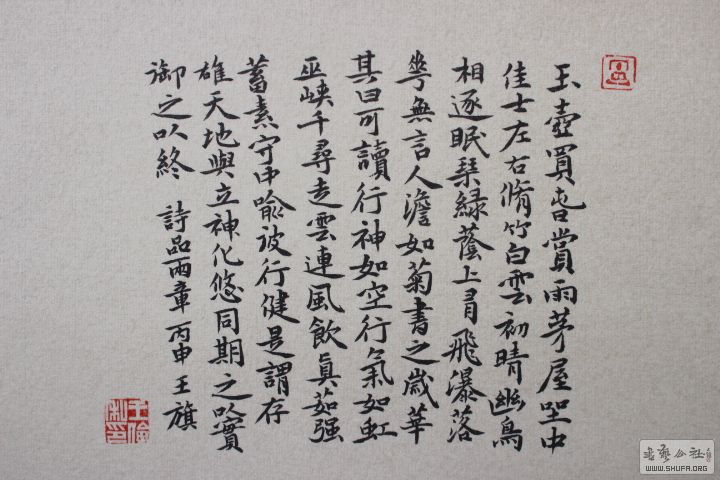 玉壺買春賞雨茅屋坐中
佳士左右脩竹白雲初晴幽鳥
相逐眠琴綠蔭上有飛瀑落
華無言人澹如菊書之歲華
其曰可讀行神如空行氣如虹
巫峽千尋走雲連風飲真茹强
蓄素守中喻彼行健是謂存
雄天地與立神化悠同期之以實
御之以終 詩品兩章丙申王旗
WWW.SHUFA.ORG